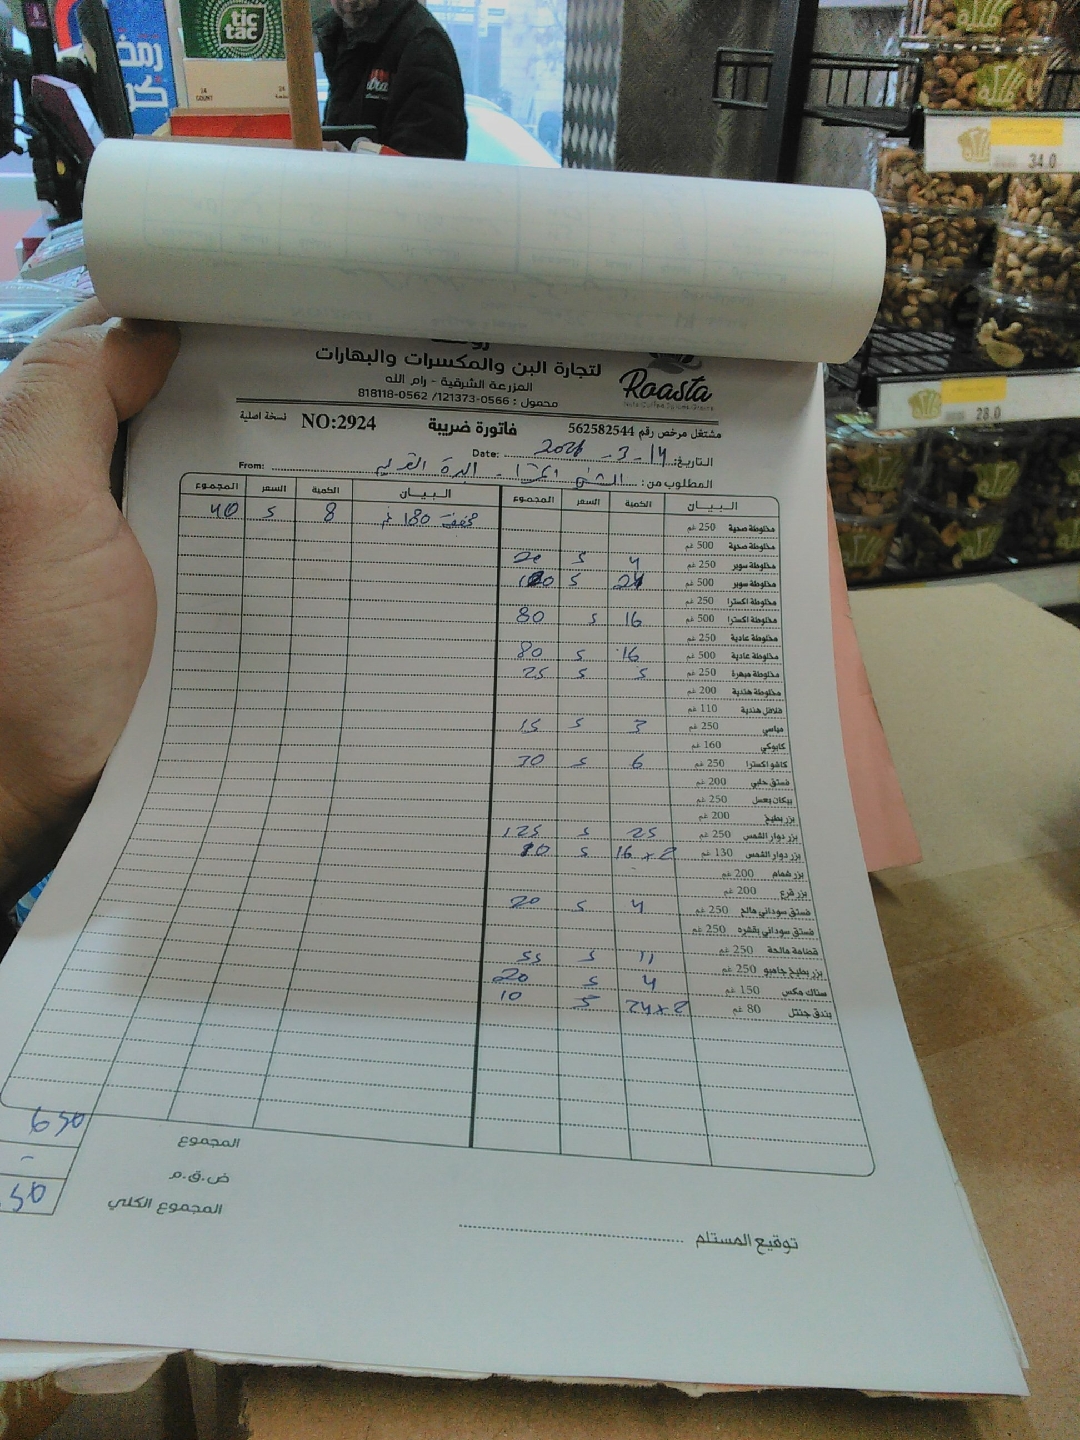 tic
tac
14
COUNT
34.0
28.0
لتجارة البن والمكسرات والبهارات
المزرعة الشرقية - رام الله
محمول : 0566-121373 /0562-818118
Roasta
مشتغل مرخص رقم 562582544
فاتورة ضريبة
NO:2924
نسخة اصلية
التاريخ: 14-3-2026 Date:
المطلوب من: From:
البيان الكمية السعر المجموع البيان الكمية السعر المجموع
مخلوطة صحية 250 غم مجفف 180 غم 8 5 40
مخلوطة صحية 500 غم
مخلوطة سوبر 250 غم 4 5 20
مخلوطة سوبر 500 غم 24 5
مخلوطة اكسترا 250 غم
مخلوطة اكسترا 500 غم 16 5 80
مخلوطة عادية 250 غم
مخلوطة عادية 500 غم 16 5 80
مخلوطة مبهرة 250 غم 5 5 25
مخلوطة هندية 200 غم
فلافل هندية 110 غم
مياسي 250 غم 3 5 15
كابوكي 160 غم
كاشو اكسترا 250 غم 6 5 30
فستق حلبي 200 غم
بيكان بعسل 250 غم
بزر بطيخ 200 غم
بزر دوار الشمس 250 غم 25 5 125
بزر دوار الشمس 130 غم 16×2 5
بزر شمام 200 غم
بزر قرع 200 غم
فستق سوداني مالح 250 غم 4 5 20
فستق سوداني بقشره 250 غم
قضامة مالحة 250 غم 11 5 55
بزر بطيخ جامبو 250 غم 4 5 20
سناك مكس 150 غم 24×2 5 10
بندق جنتل 80 غم
المجموع 650
ض.ق.م -
المجموع الكلي
توقيع المستلم